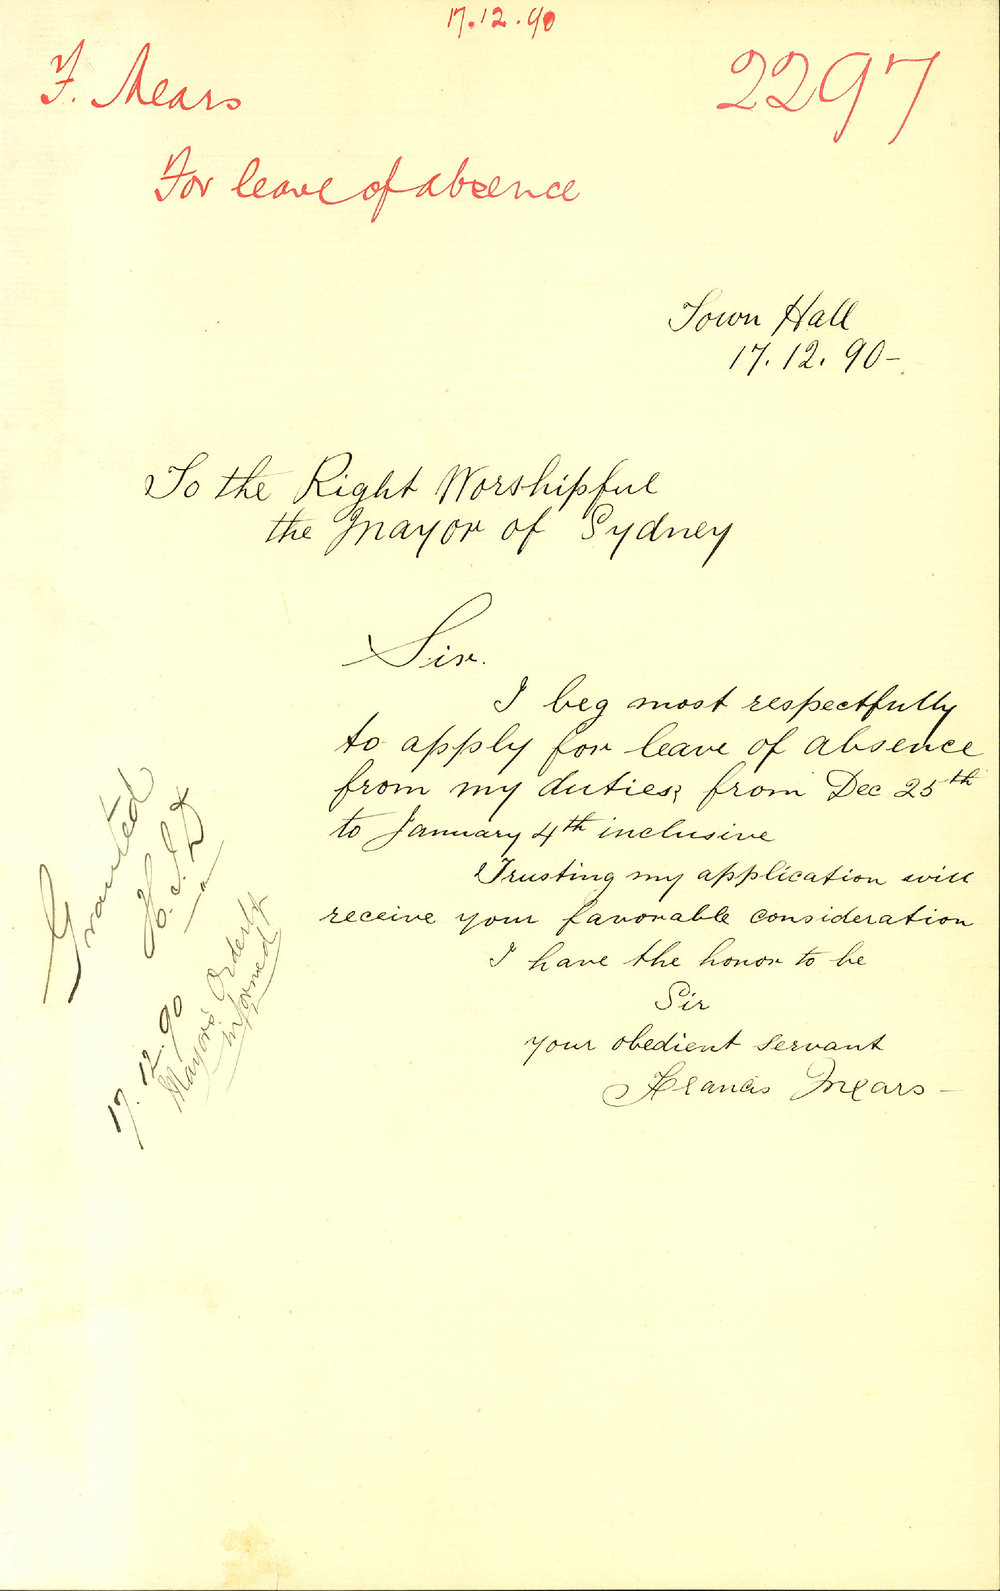 17.12.90
F. Mears
2297
For leave of absence
Town Hall
17.12.90-
To the Right Worshipful
the Mayor of Sydney
Sir.
I beg most respectfully
to apply for leave of absence
from my duties; from Dec 25th
to January 4th inclusive
Trusting my application will
receive your favorable consideration
I have the honor to be
Sir
your obedient servant
Francis Mears -
Granted
17.12.90
Mayor's Orderly
informed